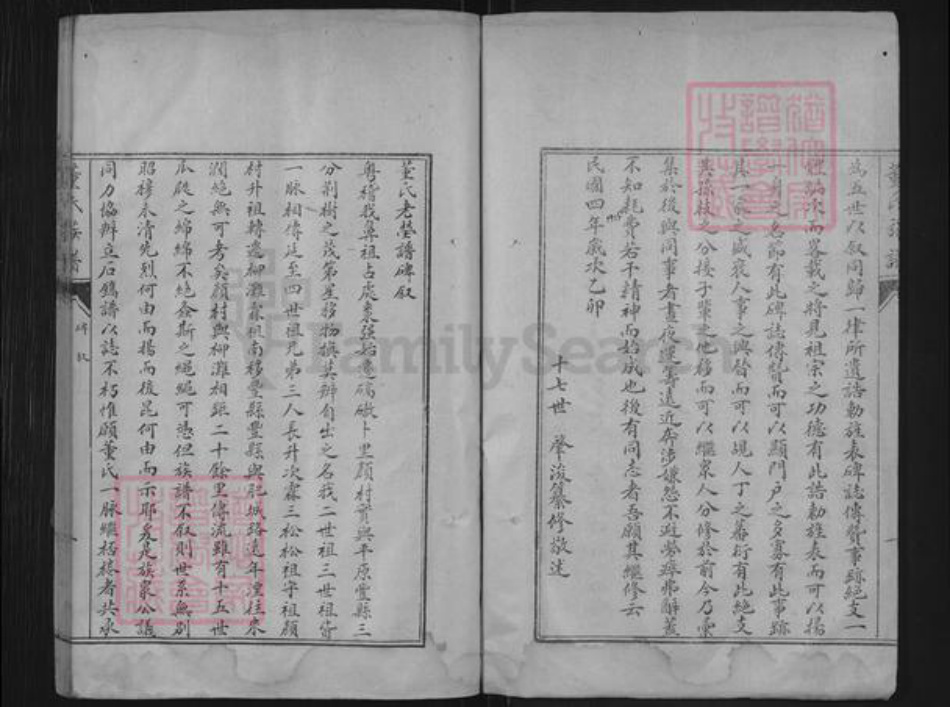 為五世以叙同歸一律所遺誥勅旌表碑誌傳贊事跡絕支一
體編次而畧載之將見祖宗之功德有此誥勅旌表而可以揚
有此碑誌傳贊而可以顯門戶之多寡有此事跡
之盛衰人事之興替而可以現人丁之蕃衍有此絕支
其孫枝之分接子輩之他移而可以繼眾人分修於前今乃彙
集於後與同事者晝夜運籌遠近奔涉嫌怨不避勞瘁弗辭蓋
不知耗費若干精神而始成也後有同志者吾願其繼修云
民國四年歲次乙卯
十七世 肇浚纂修敬述
董氏老塋譜碑叙
粵稽我鼻祖占處棗強始遷 卜里顏村實與平原壹縣三
分荊樹之茂第星移物換莫辨自出之名我二世祖三世祖皆
一脉相傳延至四世祖兄弟三人長升次霖三松松祖守祖顏
村升祖轉遷柳灘霖祖南移豐縣豐縣與肥城路遠年湮往來
濶絕無可考矣顏村與柳灘相距二十餘里傳流雖有十五世
瓜瓞之綿綿不絕螽斯之繩繩可憑但族譜不叙則世系無別
昭穆未清先烈何由而揚而後昆何由而示耶爰是族眾公議
同力協辦立石鐫譜以誌不朽惟願董氏一脉繼 者共承
董氏族譜
碑叙
FamilySearch